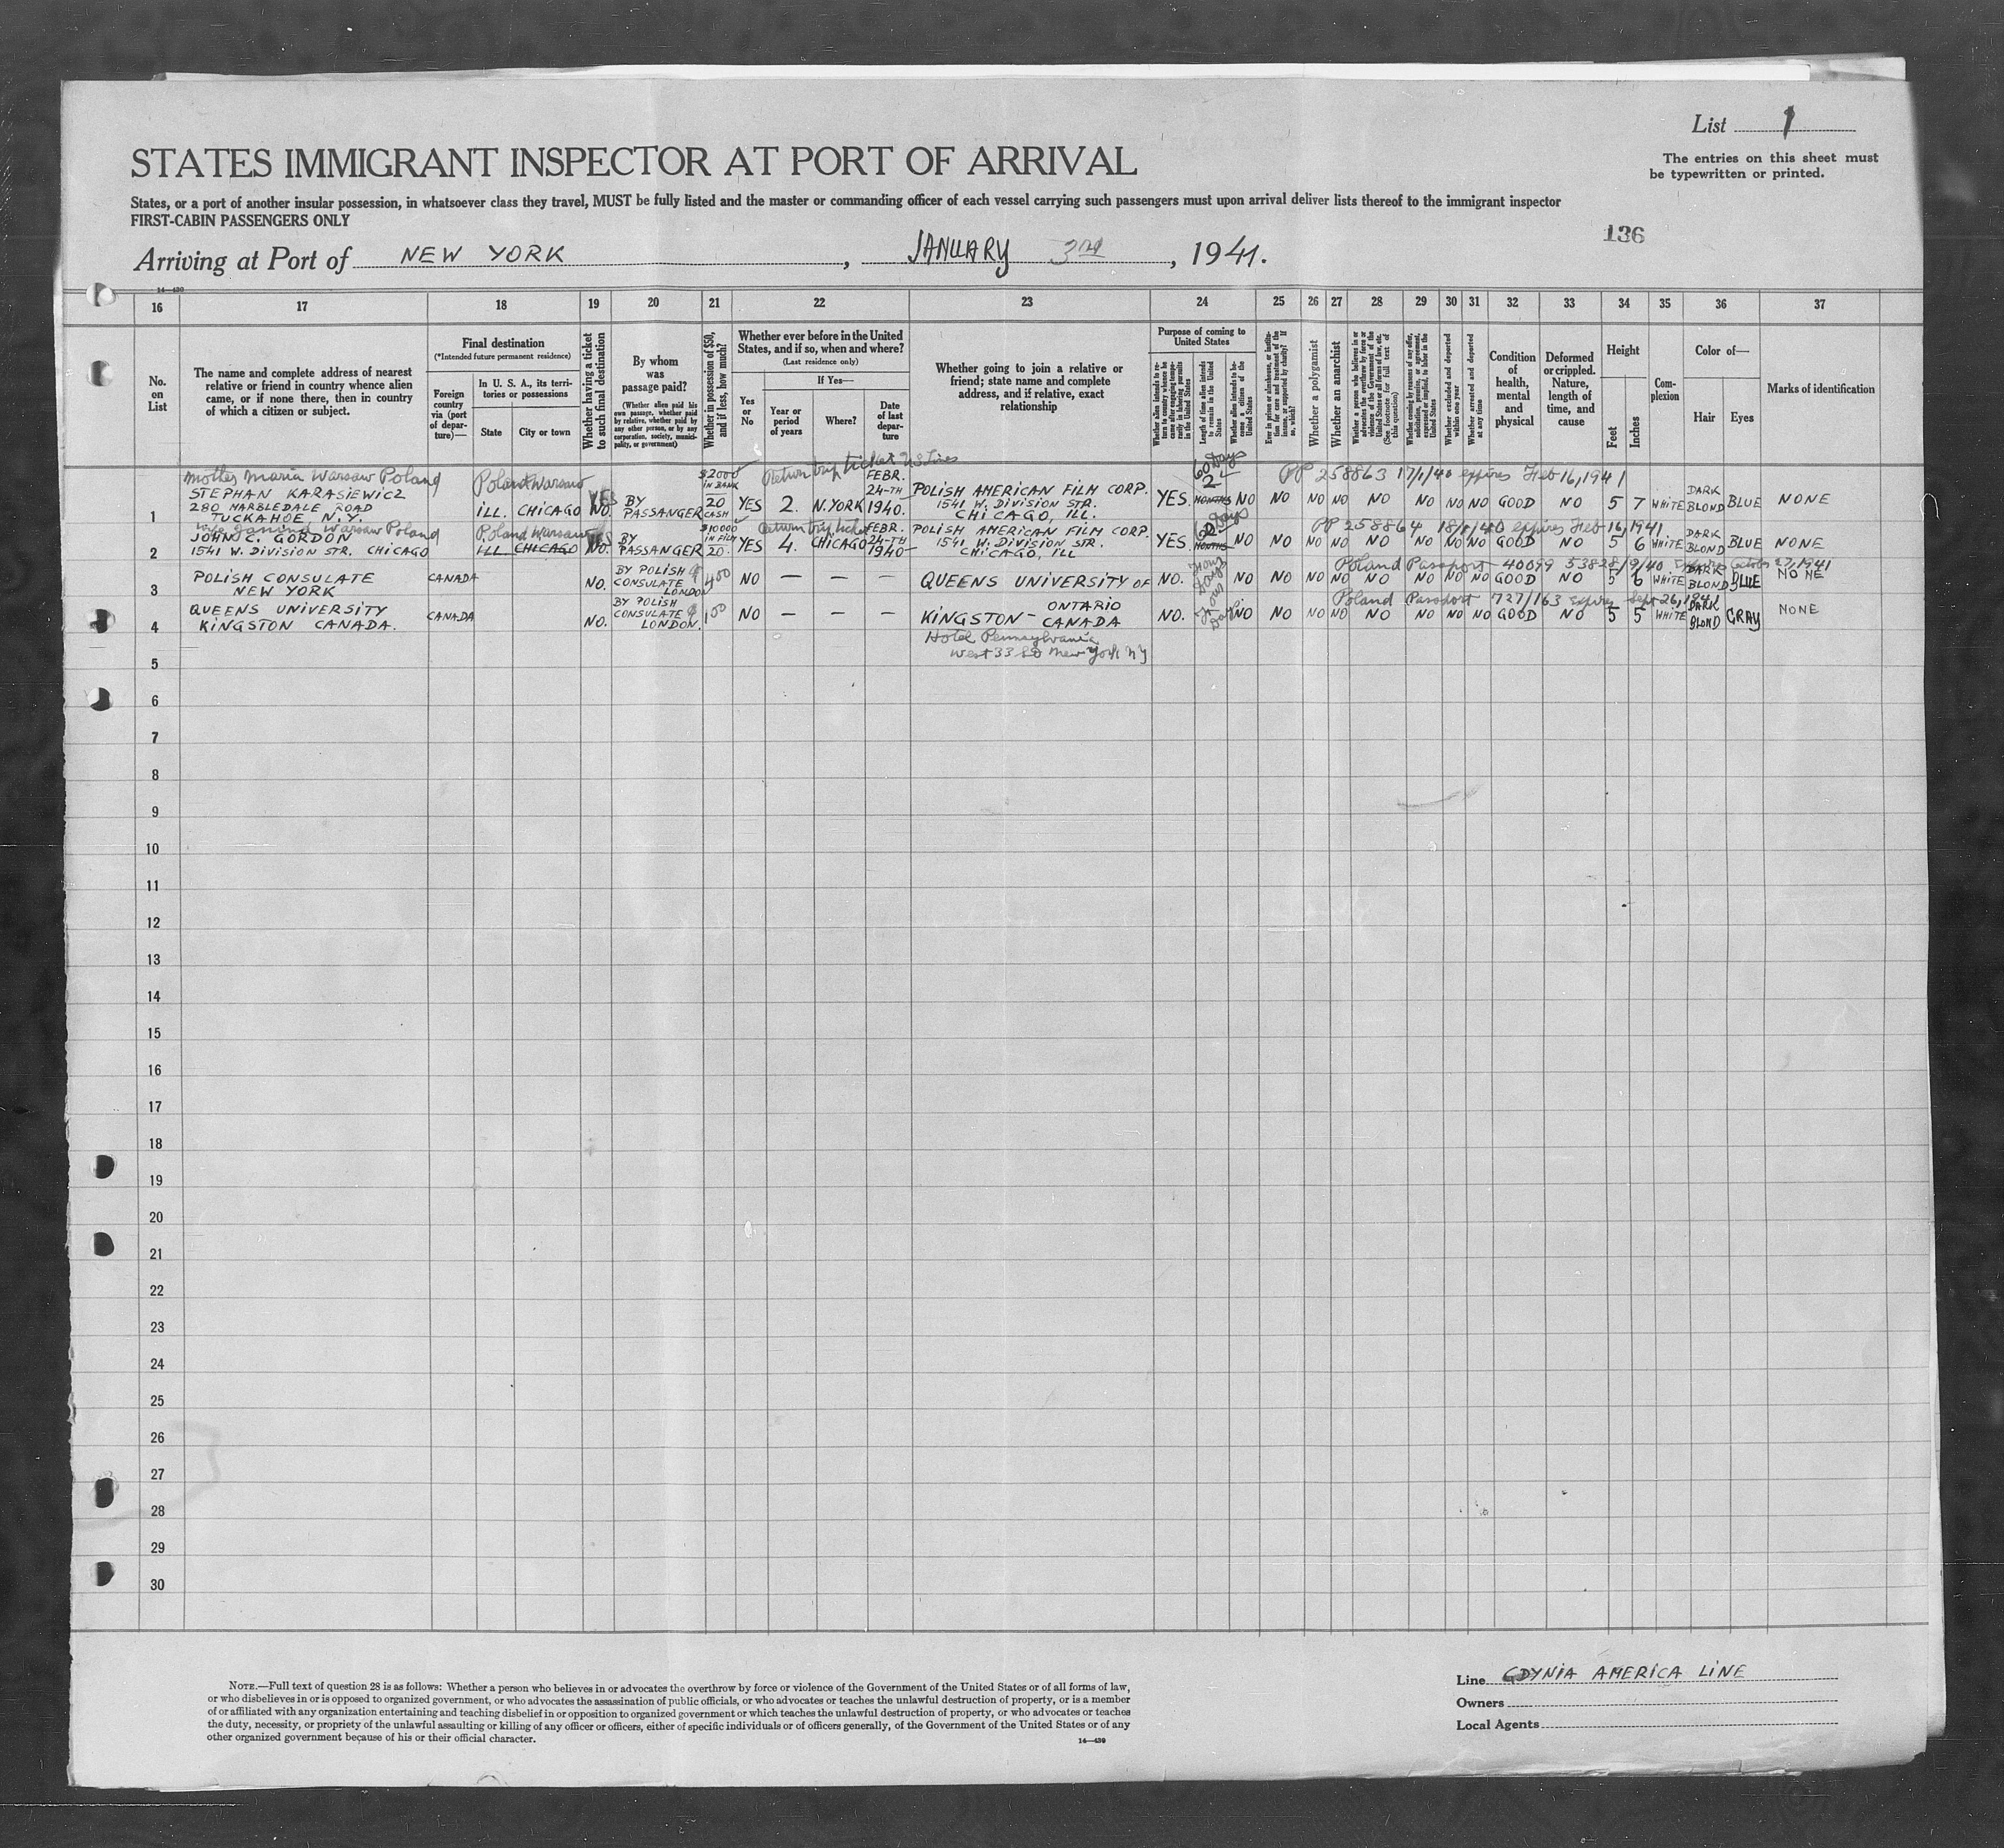 List 1
STATES IMMIGRANT INSPECTOR AT PORT OF ARRIVAL
The entries on this sheet must
be typewritten or printed.
States, or a port of another insular possession, in whatsoever class they travel, MUST be fully listed and the master or commanding officer of each vessel carrying such passengers must upon arrival deliver lists thereof to the immigrant inspector
FIRST-CABIN PASSENGERS ONLY
136
Arriving at Port of NEW YORK, JANUARY 3rd, 1941.
16 17 18 19 20 21 22 23 24 25 26 27 28 29 30 31 32 33 34 35 36 37
No. on List
The name and complete address of nearest
relative or friend in country whence alien
came, or if none there, then in country
of which a citizen or subject.
Final destination
(*Intended future permanent residence)
Foreign country via (port of departure)—
In U. S. A., its territories or possessions
State City or town
Whether having a ticket to such final destination
By whom was passage paid?
(Whether alien paid his own passage, whether paid by relative, whether paid by any other person, or by any corporation, society, municipality, or government)
Whether in possession of $50, and if less, how much?
Whether ever before in the United
States, and if so, when and where?
(Last residence only)
Yes or No
If Yes—
Year or period of years
Where?
Date of last departure
Whether going to join a relative or
friend; state name and complete
address, and if relative, exact
relationship
Purpose of coming to United States
Whether alien intends to return to country whence he came after engaging temporarily in laboring pursuits in the United States
Length of time alien intends to remain in the United States
Whether alien intends to become a citizen of the United States
Ever in prison or almshouse, or institution for care and treatment of the insane, or supported by charity? If so, which?
Whether a polygamist
Whether an anarchist
Whether a person who believes in or advocates the overthrow by force or violence of the Government of the United States or all forms of law, etc. (See footnote for full text of this question)
Whether coming by reason of any offer, solicitation, promise, or agreement, expressed or implied, to labor in the United States
Whether excluded and deported within one year
Whether arrested and deported at any time
Condition of health, mental and physical
Deformed or crippled. Nature, length of time, and cause
Height
Feet Inches
Complexion
Color of—
Hair Eyes
Marks of identification
Mother Maria Warsaw Poland Poland Warsaw $2000 IN BANK Return trip ticket US Lines 60 Days PP 258863 17/1/40 expires Feb 16, 1941
1 STEPHAN KARASIEWICZ
280 MARBLEDALE ROAD
TUCKAHOE N.Y.
ILL. CHICAGO YES NO. BY PASSANGER 20 CASH YES 2. N.YORK FEBR. 24-TH 1940.
POLISH AMERICAN FILM CORP.
1541 W. DIVISION STR.
CHICAGO, ILL.
YES. 2 MONTHS NO NO NO NO NO NO NO NO GOOD NO 5 7 WHITE DARK BLOND BLUE NONE
Wife Janina Warsaw Poland Poland Warsaw $10000 IN FILM Return trip ticket 60 Days PP 258864 18/1/40 expires Feb 16, 1941
2 JOHN C. GORDON
1541 W. DIVISION STR. CHICAGO
ILL. CHICAGO YES NO. BY PASSANGER 20. YES 4. CHICAGO FEBR. 24-TH 1940
POLISH AMERICAN FILM CORP.
1541 W. DIVISION STR.
CHICAGO, ILL
YES. 2 MONTHS NO NO NO NO NO NO NO NO GOOD NO 5 6 WHITE DARK BLOND BLUE NONE
Poland Passport 40099 October 27, 1941
3 POLISH CONSULATE
NEW YORK
CANADA NO. BY POLISH CONSULATE LONDON 400 NO — — — QUEENS UNIVERSITY OF NO. Four Days NO NO NO NO NO NO NO NO GOOD NO 5 6 WHITE DARK BLOND BLUE NONE
Poland Passport 727/163 expires Sept 26, 1941
4 QUEENS UNIVERSITY
KINGSTON CANADA.
CANADA NO. BY POLISH CONSULATE LONDON. 100 NO — — — KINGSTON – ONTARIO CANADA NO. Four Days NO NO NO NO NO NO NO NO GOOD NO 5 5 WHITE DARK BLOND GRAY NONE
Hotel Pennsylvania
West 33 St New York NY
5
6
7
8
9
10
11
12
13
14
15
16
17
18
19
20
21
22
23
24
25
26
27
28
29
30
NOTE.—Full text of question 28 is as follows: Whether a person who believes in or advocates the overthrow by force or violence of the Government of the United States or of all forms of law,
or who disbelieves in or is opposed to organized government, or who advocates the assassination of public officials, or who advocates or teaches the unlawful destruction of property, or is a member
of or affiliated with any organization entertaining and teaching disbelief in or opposition to organized government or which teaches the unlawful destruction of property, or who advocates or teaches
the duty, necessity, or propriety of the unlawful assaulting or killing of any officer or officers, either of specific individuals or of officers generally, of the Government of the United States or of any
other organized government because of his or their official character.
14—430
Line GDYNIA AMERICA LINE
Owners
Local Agents